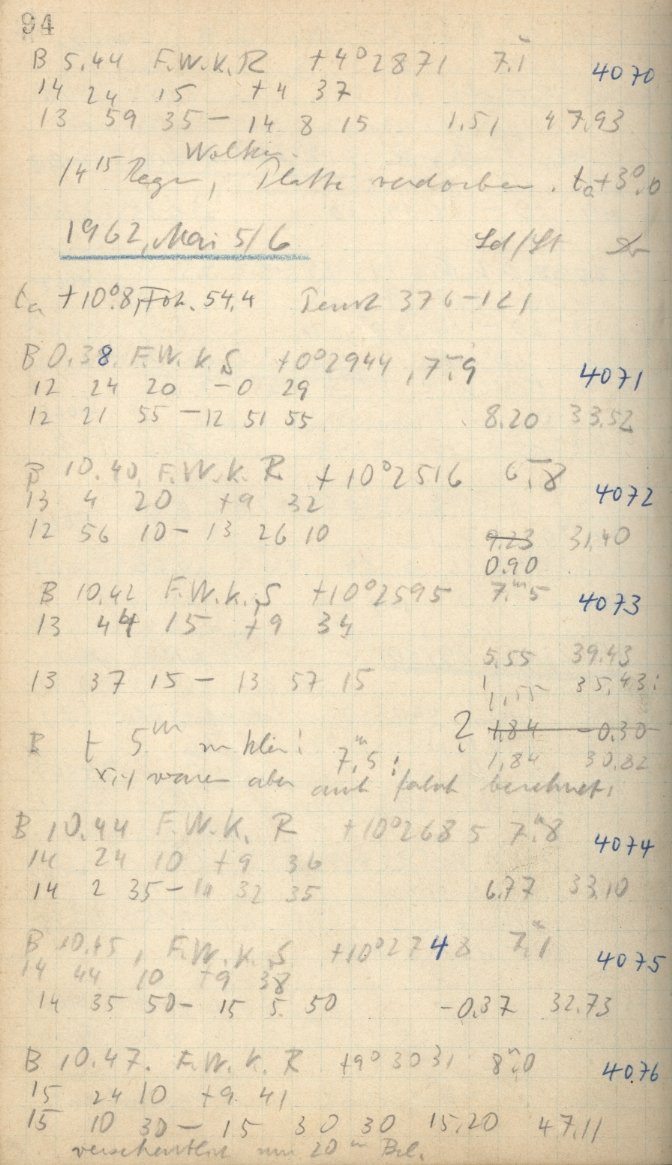 94
B 5.44 F.W.K.R +4°2871 7.1 4070
14 24 15 +4 37
13 59 35 – 14 8 15 1.51 47.93
Wolken
14 15 Regen, Platte verdorben. ta+3°.0
1962, Mai 5/6
ta +10°8, Fok. 54.4 376–121
B 0.38. F.W.K.S +0°2944, 7.m9 4071
12 24 20 –0 29
12 21 55 – 12 51 55 8.20 33.52
B 10.40, F.W.K.R +10°2516 6.m8 4072
13 4 20 +9 32
12 56 10 – 13 26 10 9.23 31.40
0.90
B 10.42 F.W.K.S +10°2595 7.m5 4073
13 44 15 +9 34
5.55 39.43
13 37 15 – 13 57 15 1.55 35.43:
? 1.84 –0.30
B t 5m zu klein! 7.m5: 1.84 30.82
x,y waren aber auch falsch berechnet.
B 10.44 F.W.K. R +10°2685 7.m8 4074
14 24 10 +9 36
14 2 35 – 14 32 35 6.77 33.10
B 10.45, F.W.K.S +10°2748 7.m1 4075
14 44 10 +9 38
14 35 50 – 15 5 50 –0.37 32.73
B 10.47. F.W.K.R +9°3031 8.m0 4076
15 24 10 +9 41
15 10 30 – 15 30 30 15.20 47.11
versehentlich nur 20m Bel.